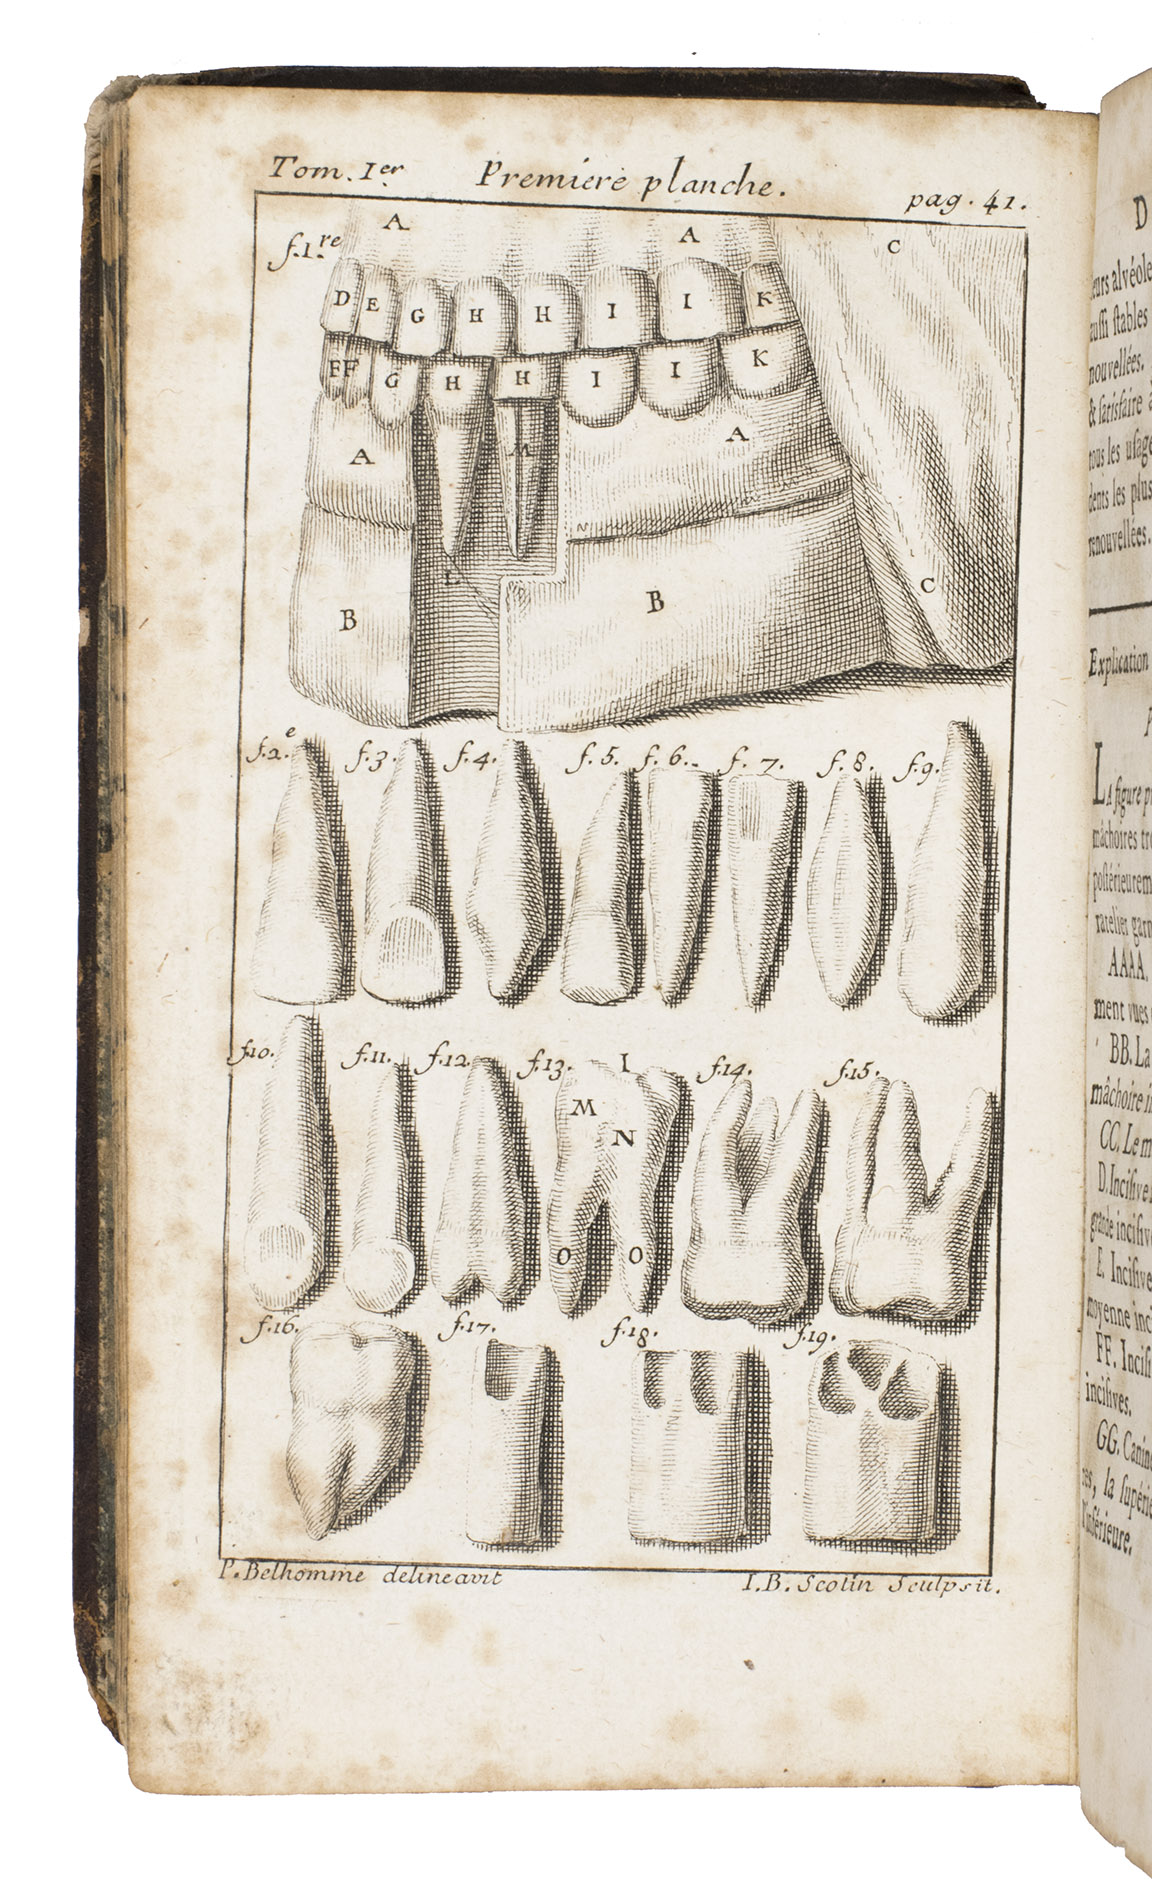 Tom. I.er Premiere planche.
pag. 41.
A
A C
f.1.re
D E G H H I I K
FF G H H I I K
A
A M
N
L C
B B
f.2.e f.3. f.4. f.5. f.6. f.7. f.8. f.9.
f.10. f.11. f.12. f.13. I f.14. f.15.
M
N
O O
f.16. f.17. f.18. f.19.
P. Belhomme delineavit I. B. Scotin Sculpsit.
D
eurs alvéole
aussi stables
nouvellées.
& satisfaire
tous les usage
dents les plus
renouvellées.
Explication
LA figure
mâchoires
postérieurem
ratelier garn
AAAA.
ment vues
BB. La
mâchoire
CC. Le m
D. Incisive
grande incisiv
E. Incisive
moyenne inci
FF. Incisi
incisives.
GG. Canin
res, la supérie
l'inférieure.